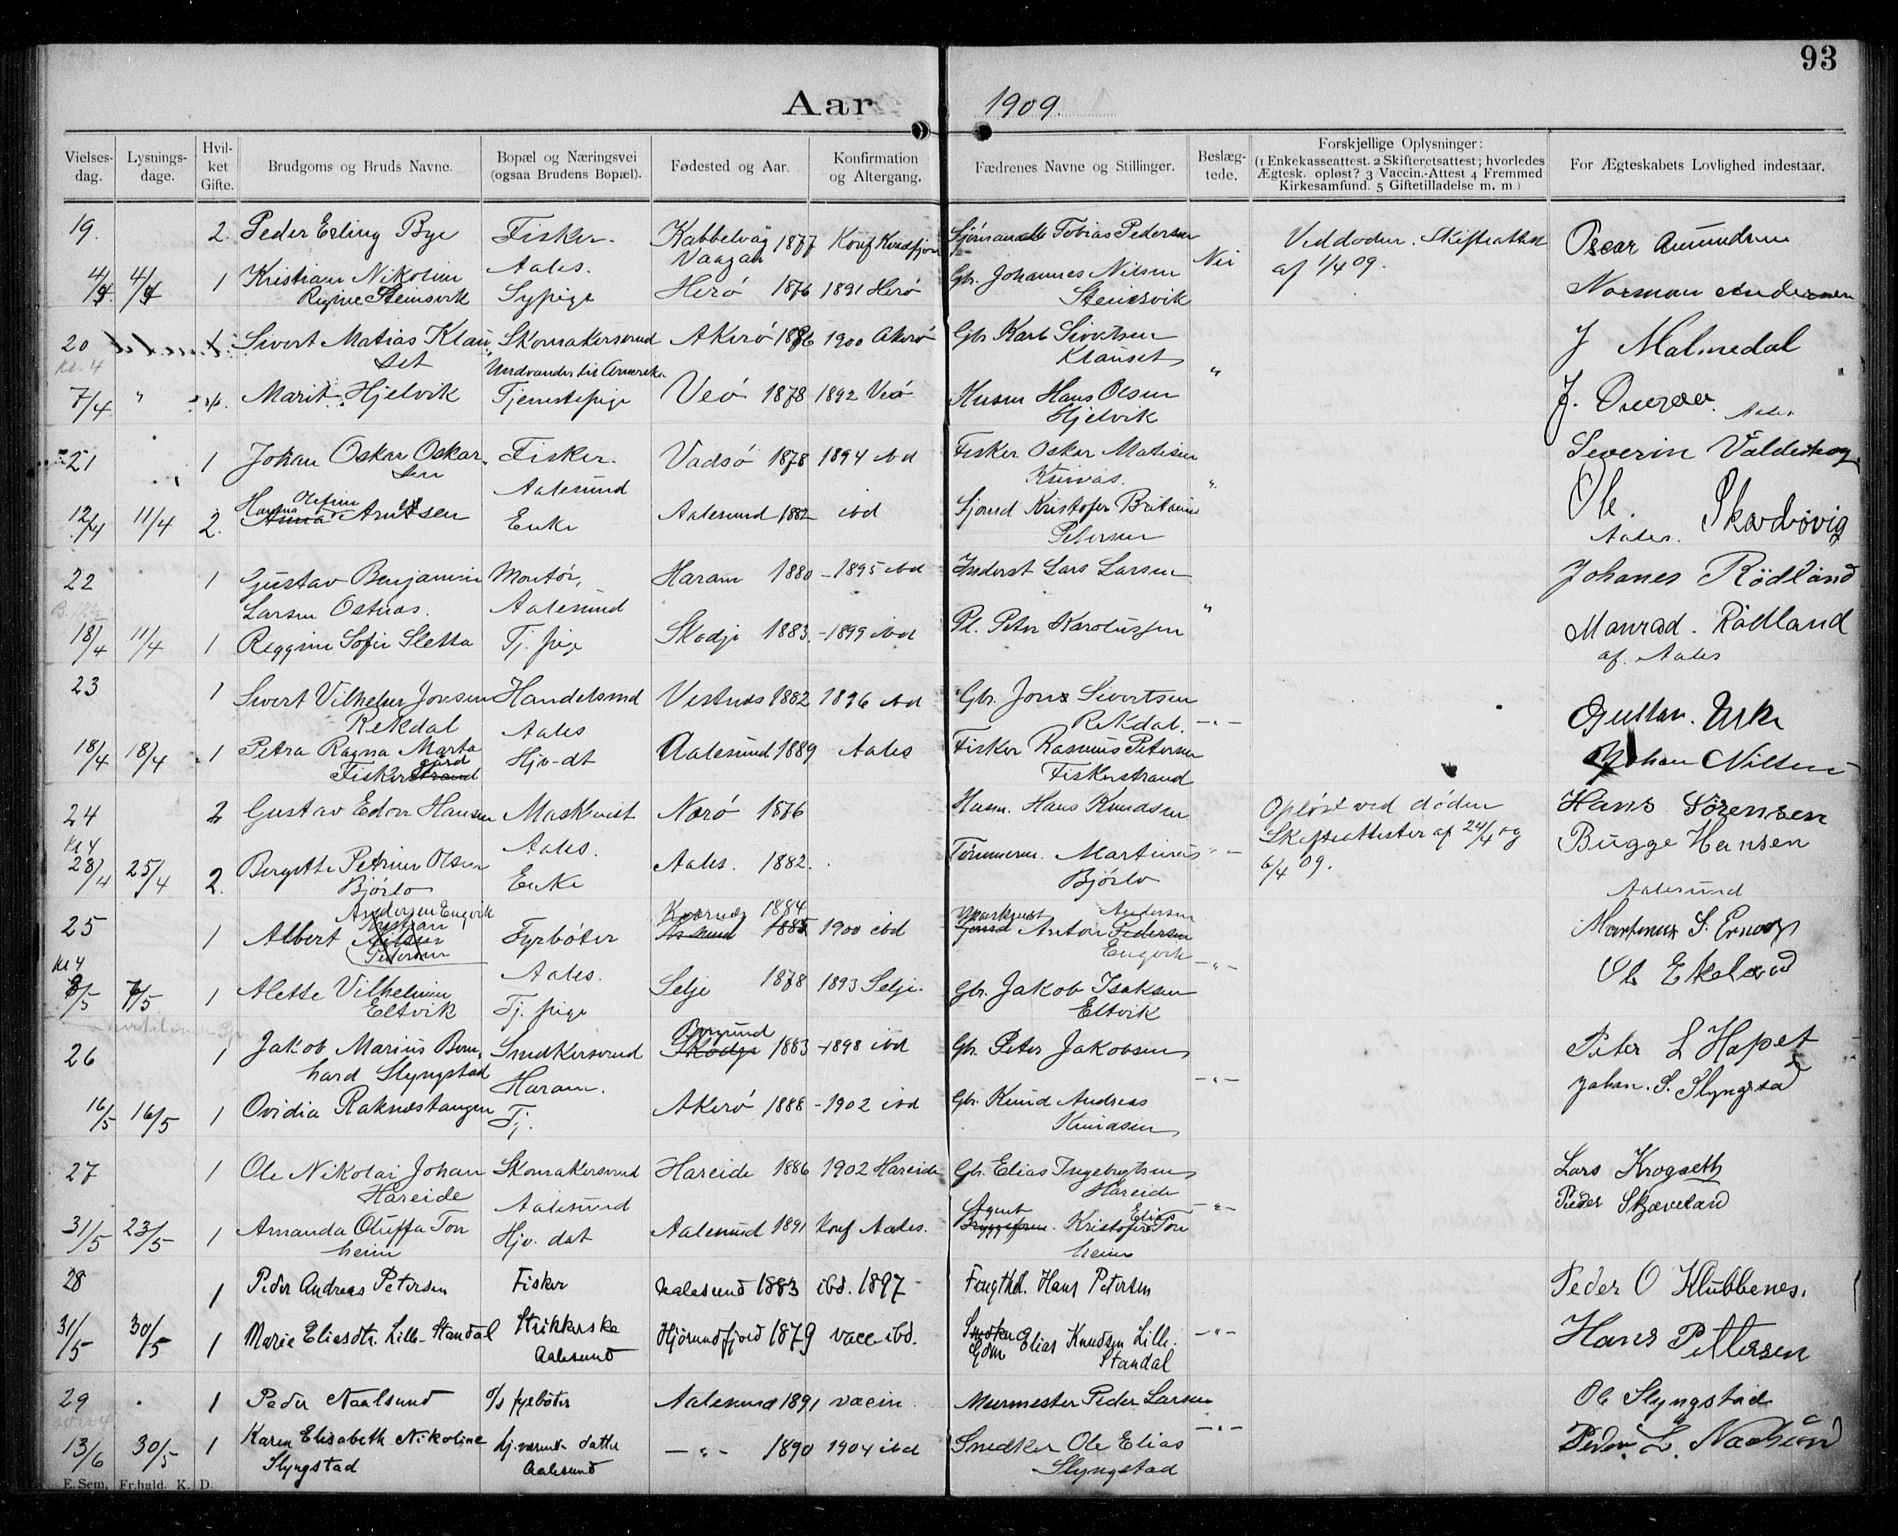 93
Aar 1909.
Vielses-dag. Lysnings-dage. Hvil-ket Gifte. Brudgoms og Bruds Navne. Bopæl og Næringsvei (ogsaa Brudens Bopæl). Fødested og Aar. Konfirmation og Altergang. Fædrenes Navne og Stillinger. Beslæg-tede. Forskjellige Oplysninger: (1 Enkekasseattest. 2 Skifteretsattest; hvorledes Ægtesk. opløst? 3 Vaccin.-Attest 4 Fremmed Kirkesamfund. 5 Giftetilladelse m. m) For Ægteskabets Lovlighed indestaar.
19. 2. Peder Erling Bye Fisker. Kabbelvåg Vaagan 1877 Konf Sjömand Tobias Pedersen Nei Ved döden. Skifteattest af 1/4 09. Oscar Amundsen
4/4 1 Kristiane Nikoline Regine Steinsvik Aales. Sypige Herö 1876 1891 Herö Gbr. Johannes Nilsen Steinsvik Norman Andersen
20 Sivert Matias Klauset Skomakersvend Akerö 1886 1900 Akerö Gbr Karl Sivertsen Klauset J Malmedal
Kl. 4 Udvandrer til Amerika
7/4 " Marit Hjelvik Tjenestepige Veö 1878 1892 Veö Husm Hans Olsen Hjelvik " J. Aales
21 1 Johan Oskar Oskarsen Fisker. Aalesund Vadsö 1878 1894 ibd Fisker Oskar Matisen " Severin Valderhaug
12/4 11/4 2. Hanna Olefine Anna Arntsen Enke Aalesund 1882 ibd Sjömd Kristofer Petersen Ole Skarbövig Aales.
22 1 Gustav Benjamin Larsen Ostnes. Montör, Aalesund Haram 1880 - 1895 ibd Inderst Lars Larsen " Johanes Rödland
18/4 11/4 1 Reggine Sofie Sletta Tj. pige Skodje 1883. - 1899 ibd Pl. Peter Karolussen Monrad. Rödland af. Aales
23 1 Sivert Vilhelm Jonsen Rekdal Handelsmd Aales Vestnes 1882 1896 ibd Gbr. Jons Sivertsen Rekdal. -"- Gustav. Urke
18/4 18/4 1 Petra Ragna Marta Fiskerstrand gård Hjv-dt Aalesund 1889 Aales Fisker Rasmus Petersen Fiskerstrand Johan Nilsen
24 2 Gustav Edon Hansen Maskinist Aales. Nærö 1876 Husm. Hans Knudsen Oplöst ved döden Skifteattester af 24/4 og 6/4 09. Hans Sörensen
Kl 4
28/4 25/4 2. Bergitte Petrine Olsen Björlo Enke Aales. 1882. Tömmerm. Martinus Björlo "- Bugge Hansen Aalesund
25 1 Albert Andersen Engvik Nystrøm Nilsen Pedersen Fyrböter Aales. Kvernes 1884 1885 1900 ibd Maskinist Anton Andersen Pedersen Engvik -"- Martinus S. Ernæs
Kl 4
8/5 1 Alette Vilhelmine Eltvik Tj. pige Selje 1878 1893 Selje. Gbr. Jakob Isaksen Eltvik Ole Ekeland
26 1 Jakob Marius Bernhard Slyngstad Snedkersvend Haram. Borgund Skodje 1883 - 1898 ibd Gbr Peter Jakobsen -"- Peter L Hapet
16/5 16/5 1 Ovidia Raknestangen Tj. Akerö 1888 - 1902 ibd Gbr. Knud Andreas Knudsen Johan. S. Slyngstad
27 1 Ole Nikolai Johan Hareide Skomakersvend Aalesund Hareide 1886 1902 Hareide Gbr. Elias Ingebrigtsen Hareide -"- Lars Krogseth
31/5 23/5 1 Amanda Oluffa Tonheim Hjv. dat Aalesund 1891 Konf Aales. Agent Kristofer Elias Tonheim Peder Skjæveland
28 1 Peder Andreas Petersen Fisker Aalesund 1883 ibd. 1897 - Fængthl. Hans Petersen Peder O Klubbenes.
31/5 30/5 1 Marie Eliesdtr. Lille-Standal Strikkerske Aalesund Hjörundfjord 1879 vacc ibd. Snedker Gdm Elias Knudsen Lille. Standal -"- Hans Pettersen
29 1 Peder Naalsund D/S fyrböter Aalesund 1891 vaccin. Murmester Peder Larsen -"- Ole Slyngstad
13/6 30/5 1 Karen Elisabeth Nikoline Slyngstad hj.værende datter Aalesund -"- 1890 1904 ibd Snedker Ole Elias Slyngstad Peder L. Naalsund
E. Sem, Fr.hald. K. D.